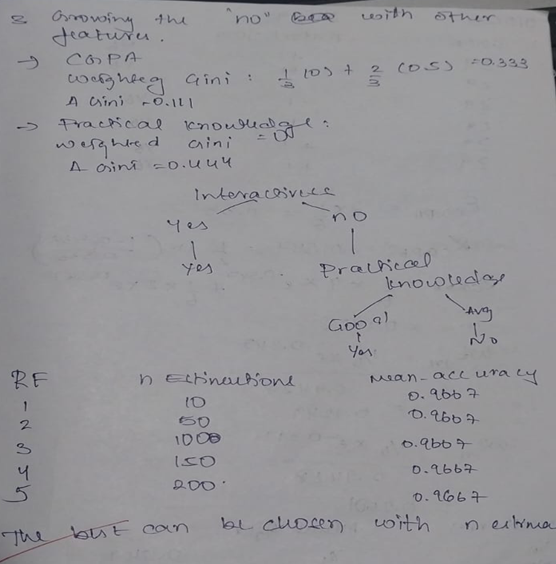 2 Growing the "no" with other
feature.
→ CGPA
Weighted Gini : 1/3 (0) + 2/3 (0.5) = 0.333
Δ Gini = 0.111
→ Practical knowledge :
weighted Gini = 0
Δ Gini = 0.444
Interactivess
Yes no
Yes Practical
knowledge
Good Avg
Yes No
RF n Estimations Mean-accuracy
1 10 0.9667
2 50 0.9667
3 100 0.9667
4 150 0.9667
5 200. 0.9667
The best can be chosen with n estima